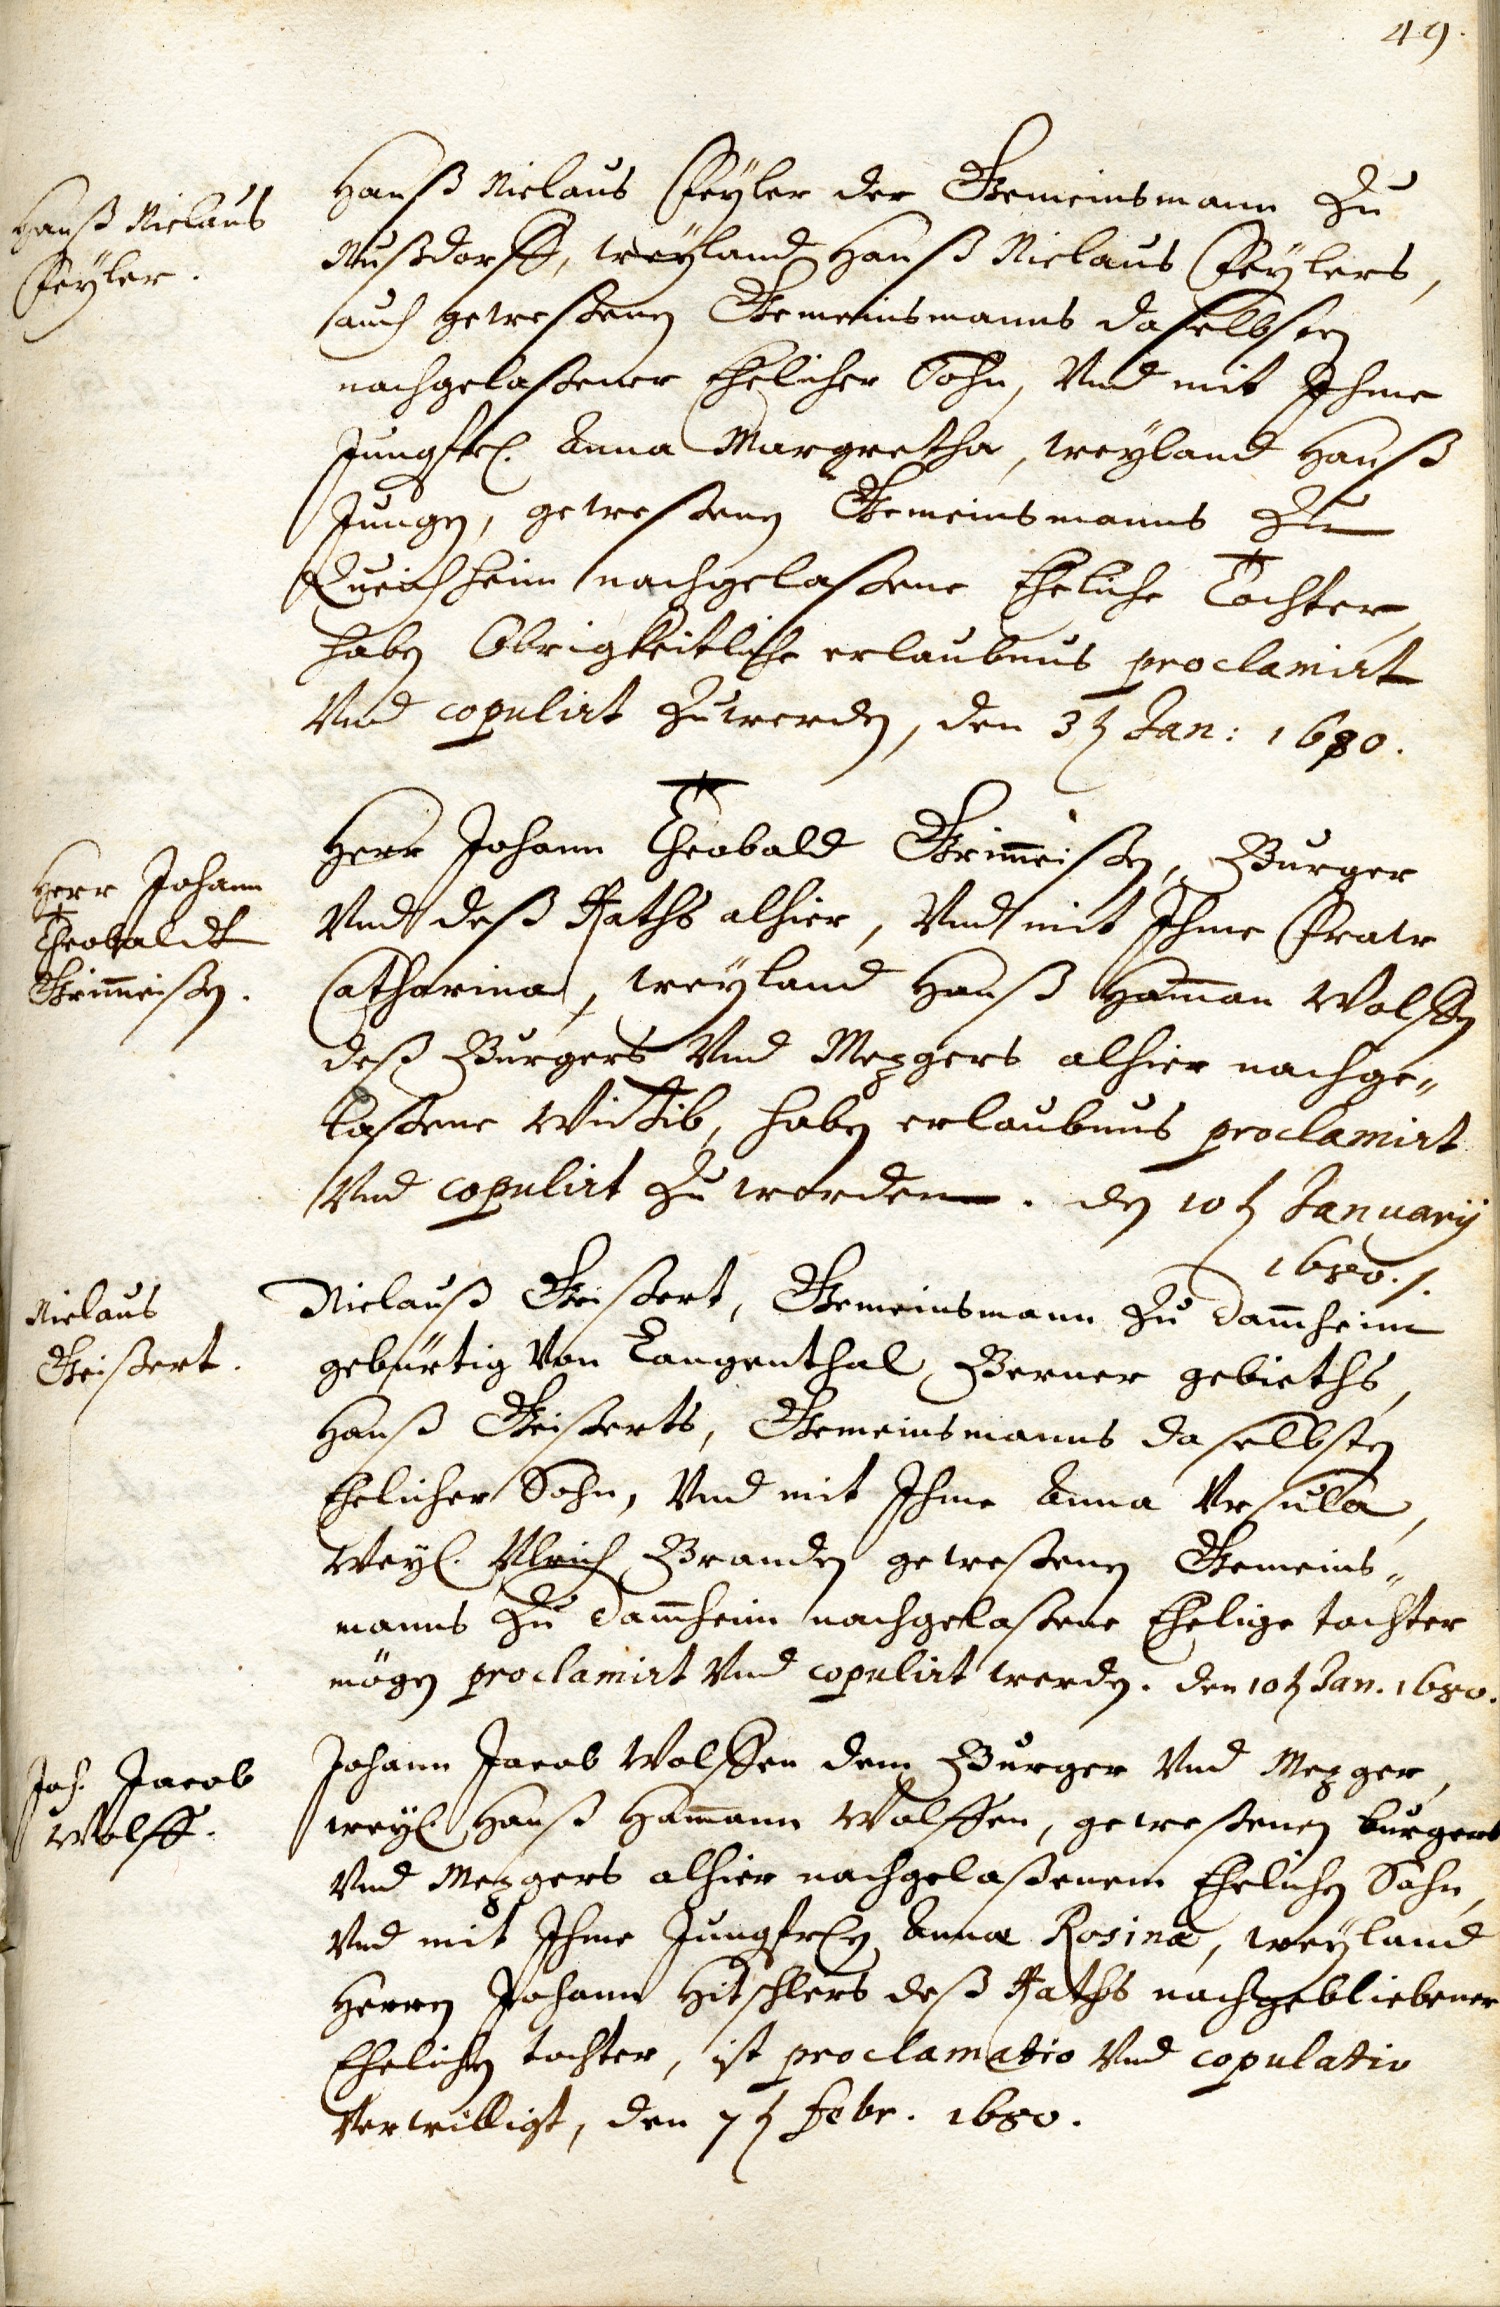 49.
Hanß Niclaus
Feyler.
Hanß Niclaus Feyler der Gemeinsmann zu
Nußdorff, weyland Hanß Niclaus Feylers,
auch geweßenen Gemeinsmanns daselbsten
nachgelaßener Ehelicher Sohn, Vnd mit Ihme
Jungfr. Anna Margretha, weyland Hanß
Jungen, geweßenen Gemeinsmanns zu
Queichheim nachgelaßene Eheliche Tochter,
haben Obrigkeitliche erlaubnus proclamirt
Vnd copulirt zuwerden, den 3t Jan: 1680.
Herr Johann
Theobaldt
Grim̄eißen.
Herr Johann Theobald Grim̄eißen, Burger
Vnd deß Raths alhier, Vnd mit Ihme Fraw
Catharina, weyland Hanß Ham̄an Wolffen
deß Burgers Vnd Mezgers alhier nachge„
laßene Wittib, haben erlaubnus proclamirt
Vnd copulirt zu werden. den 10t Januarÿ
1680./.
Niclaus
Geißert.
Niclauß Geißert, Gemeinsmann zu Dam̄heim
gebürtig Von Langenthal Berner gebieths,
Hanß Geißerts, Gemeinsmanns daselbsten
Ehelicher Sohn, Vnd mit Ihme Anna Vrsula,
Weyl. Vlrich Branden geweßenen Gemeins„
manns zu Dam̄heim nachgelaßene Ehelige tochter
mögen proclamirt Vnd copulirt werden. den 10t Jan. 1680.
Joh. Jacob
Wolff.
Johann Jacob Wolffen dem Burger Vnd Mezger,
weyl. Hanß Ham̄ann Wolffen, geweßenen burgers
Vnd Mezgers alhier nachgelaßenem Ehelichen Sohn,
Vnd mit Ihme Jungfren Anna Rosina, weyland
Herrn Johann Hitschlers deß Raths nachgebliebener
Ehelichen tochter, ist proclamatio Vnd copulatio
Verwilligt, den 7t Febr. 1680.